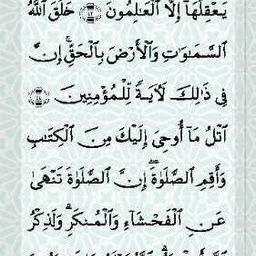 يَعْقِلُهَآ إِلَّا ٱلْعَٰلِمُونَ ۝٤٣ خَلَقَ ٱللَّهُ
ٱلسَّمَٰوَٰتِ وَٱلْأَرْضَ بِٱلْحَقِّ ۚ إِنَّ
فِى ذَٰلِكَ لَءَايَةً لِّلْمُؤْمِنِينَ ۝٤٤
ٱتْلُ مَآ أُوحِىَ إِلَيْكَ مِنَ ٱلْكِتَٰبِ
وَأَقِمِ ٱلصَّلَوٰةَ ۖ إِنَّ ٱلصَّلَوٰةَ تَنْهَىٰ
عَنِ ٱلْفَحْشَآءِ وَٱلْمُنكَرِ ۗ وَلَذِكْرُ